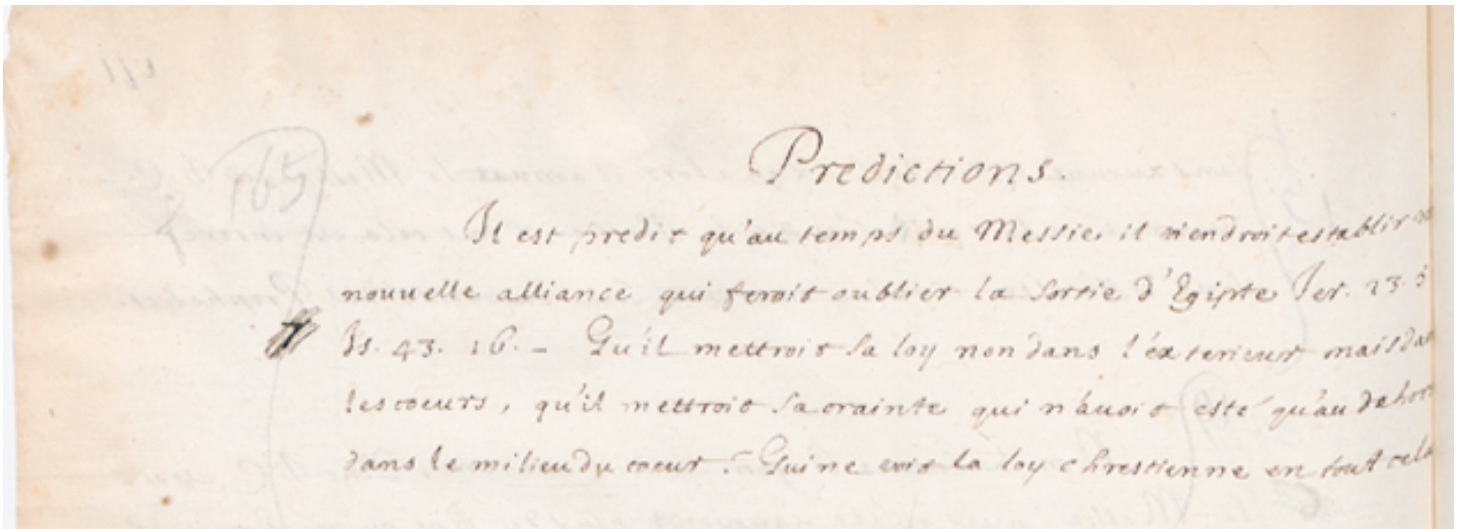 165
Predictions.
Il est predit qu'au temps du Messie il viendroit establir
nouuelle alliance qui feroit oublier la sortie d'Egipte Jer. 23. 5
Is. 43. 16. - Qu'il mettroit sa loy non dans l'exterieur mais da
les coeurs, qu'il mettroit sa crainte qui n'auoit esté qu'au dehors
dans le milieu du coeur. Qui ne voit la loy chrestienne en tout cela